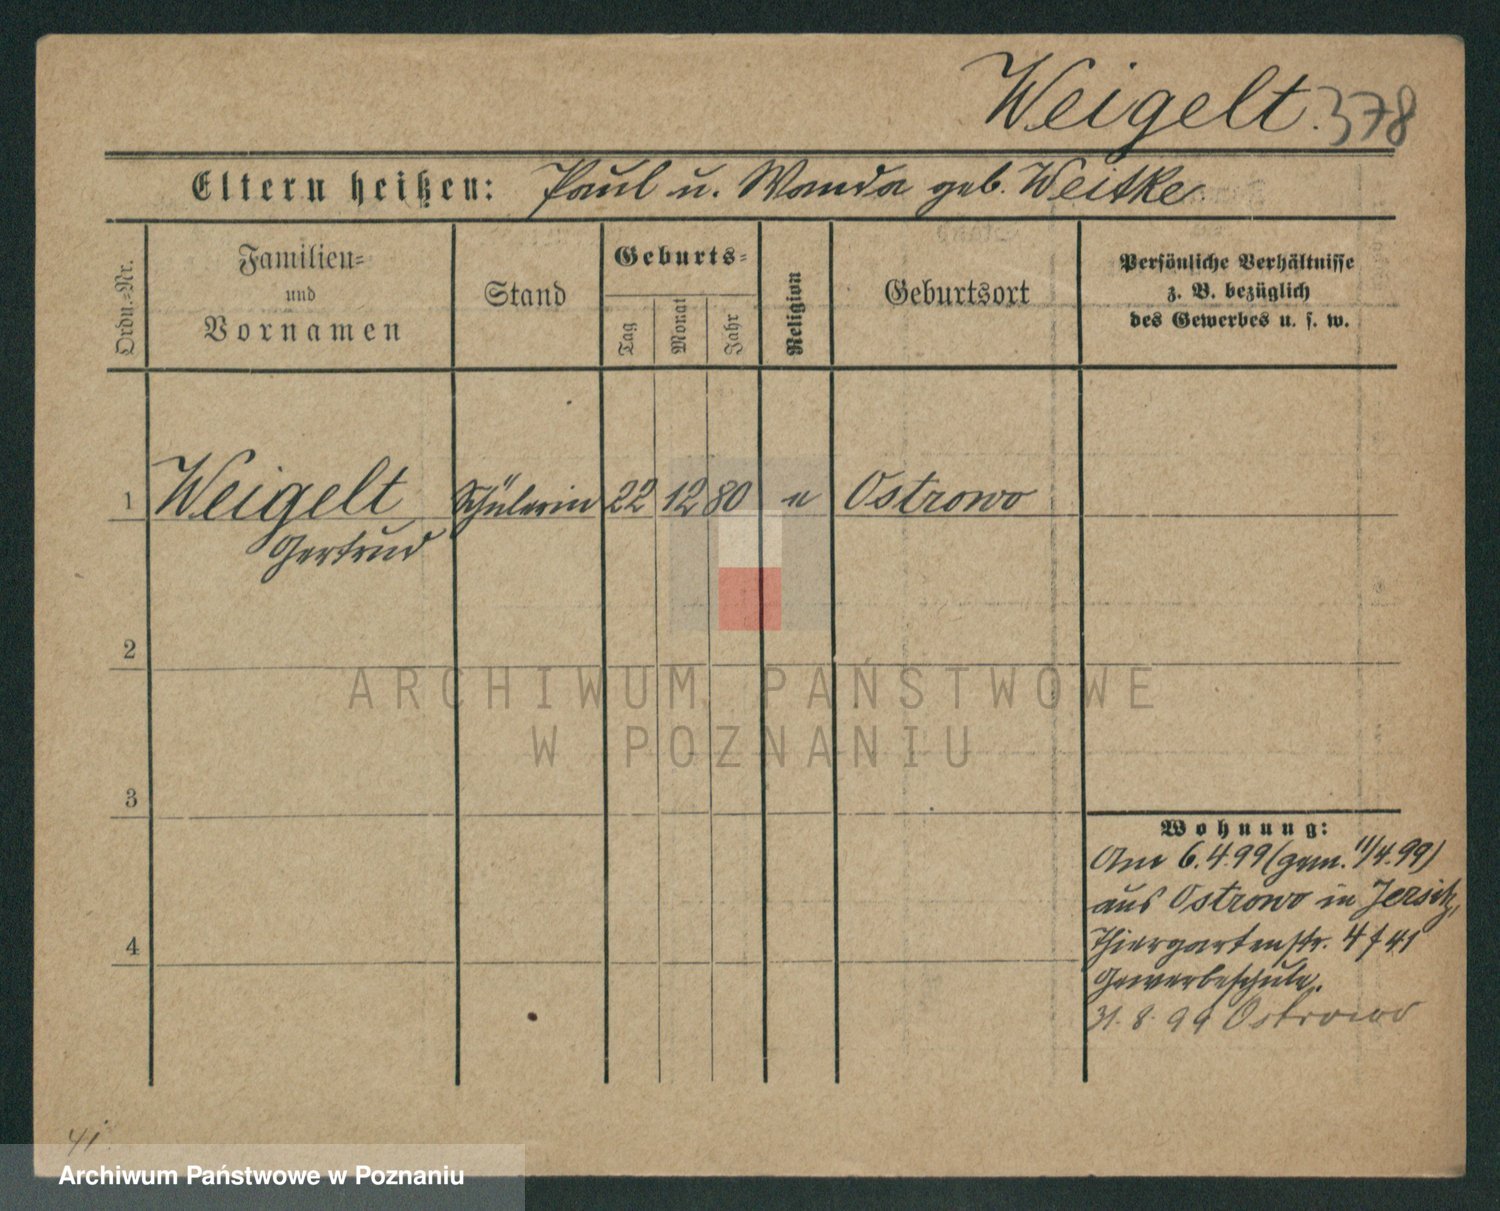 Weigelt. 378
Eltern heißen: Paul u. Wanda geb. Weitke
Ordn.=Nr.
Familien=
und
Vornamen
Stand
Geburts=
Tag
Monat
Jahr
Religion
Geburtsort
Persönliche Verhältnisse
z. B. bezüglich
des Gewerbes u. s. w.
1 Weigelt Schülerin 22 12 80 Ostrowo
Gertrud
2
ARCHIWUM PAŃSTWOWE
W POZNANIU
3
Wohnung:
Am 6.4.99 (gem. 11/4.99)
aus Ostrowo in Jersitz,
4 Thiergartenstr. 4 f 41
Gewerbeschule.
31. 8. 99 Ostrowo
41.
Archiwum Państwowe w Poznaniu